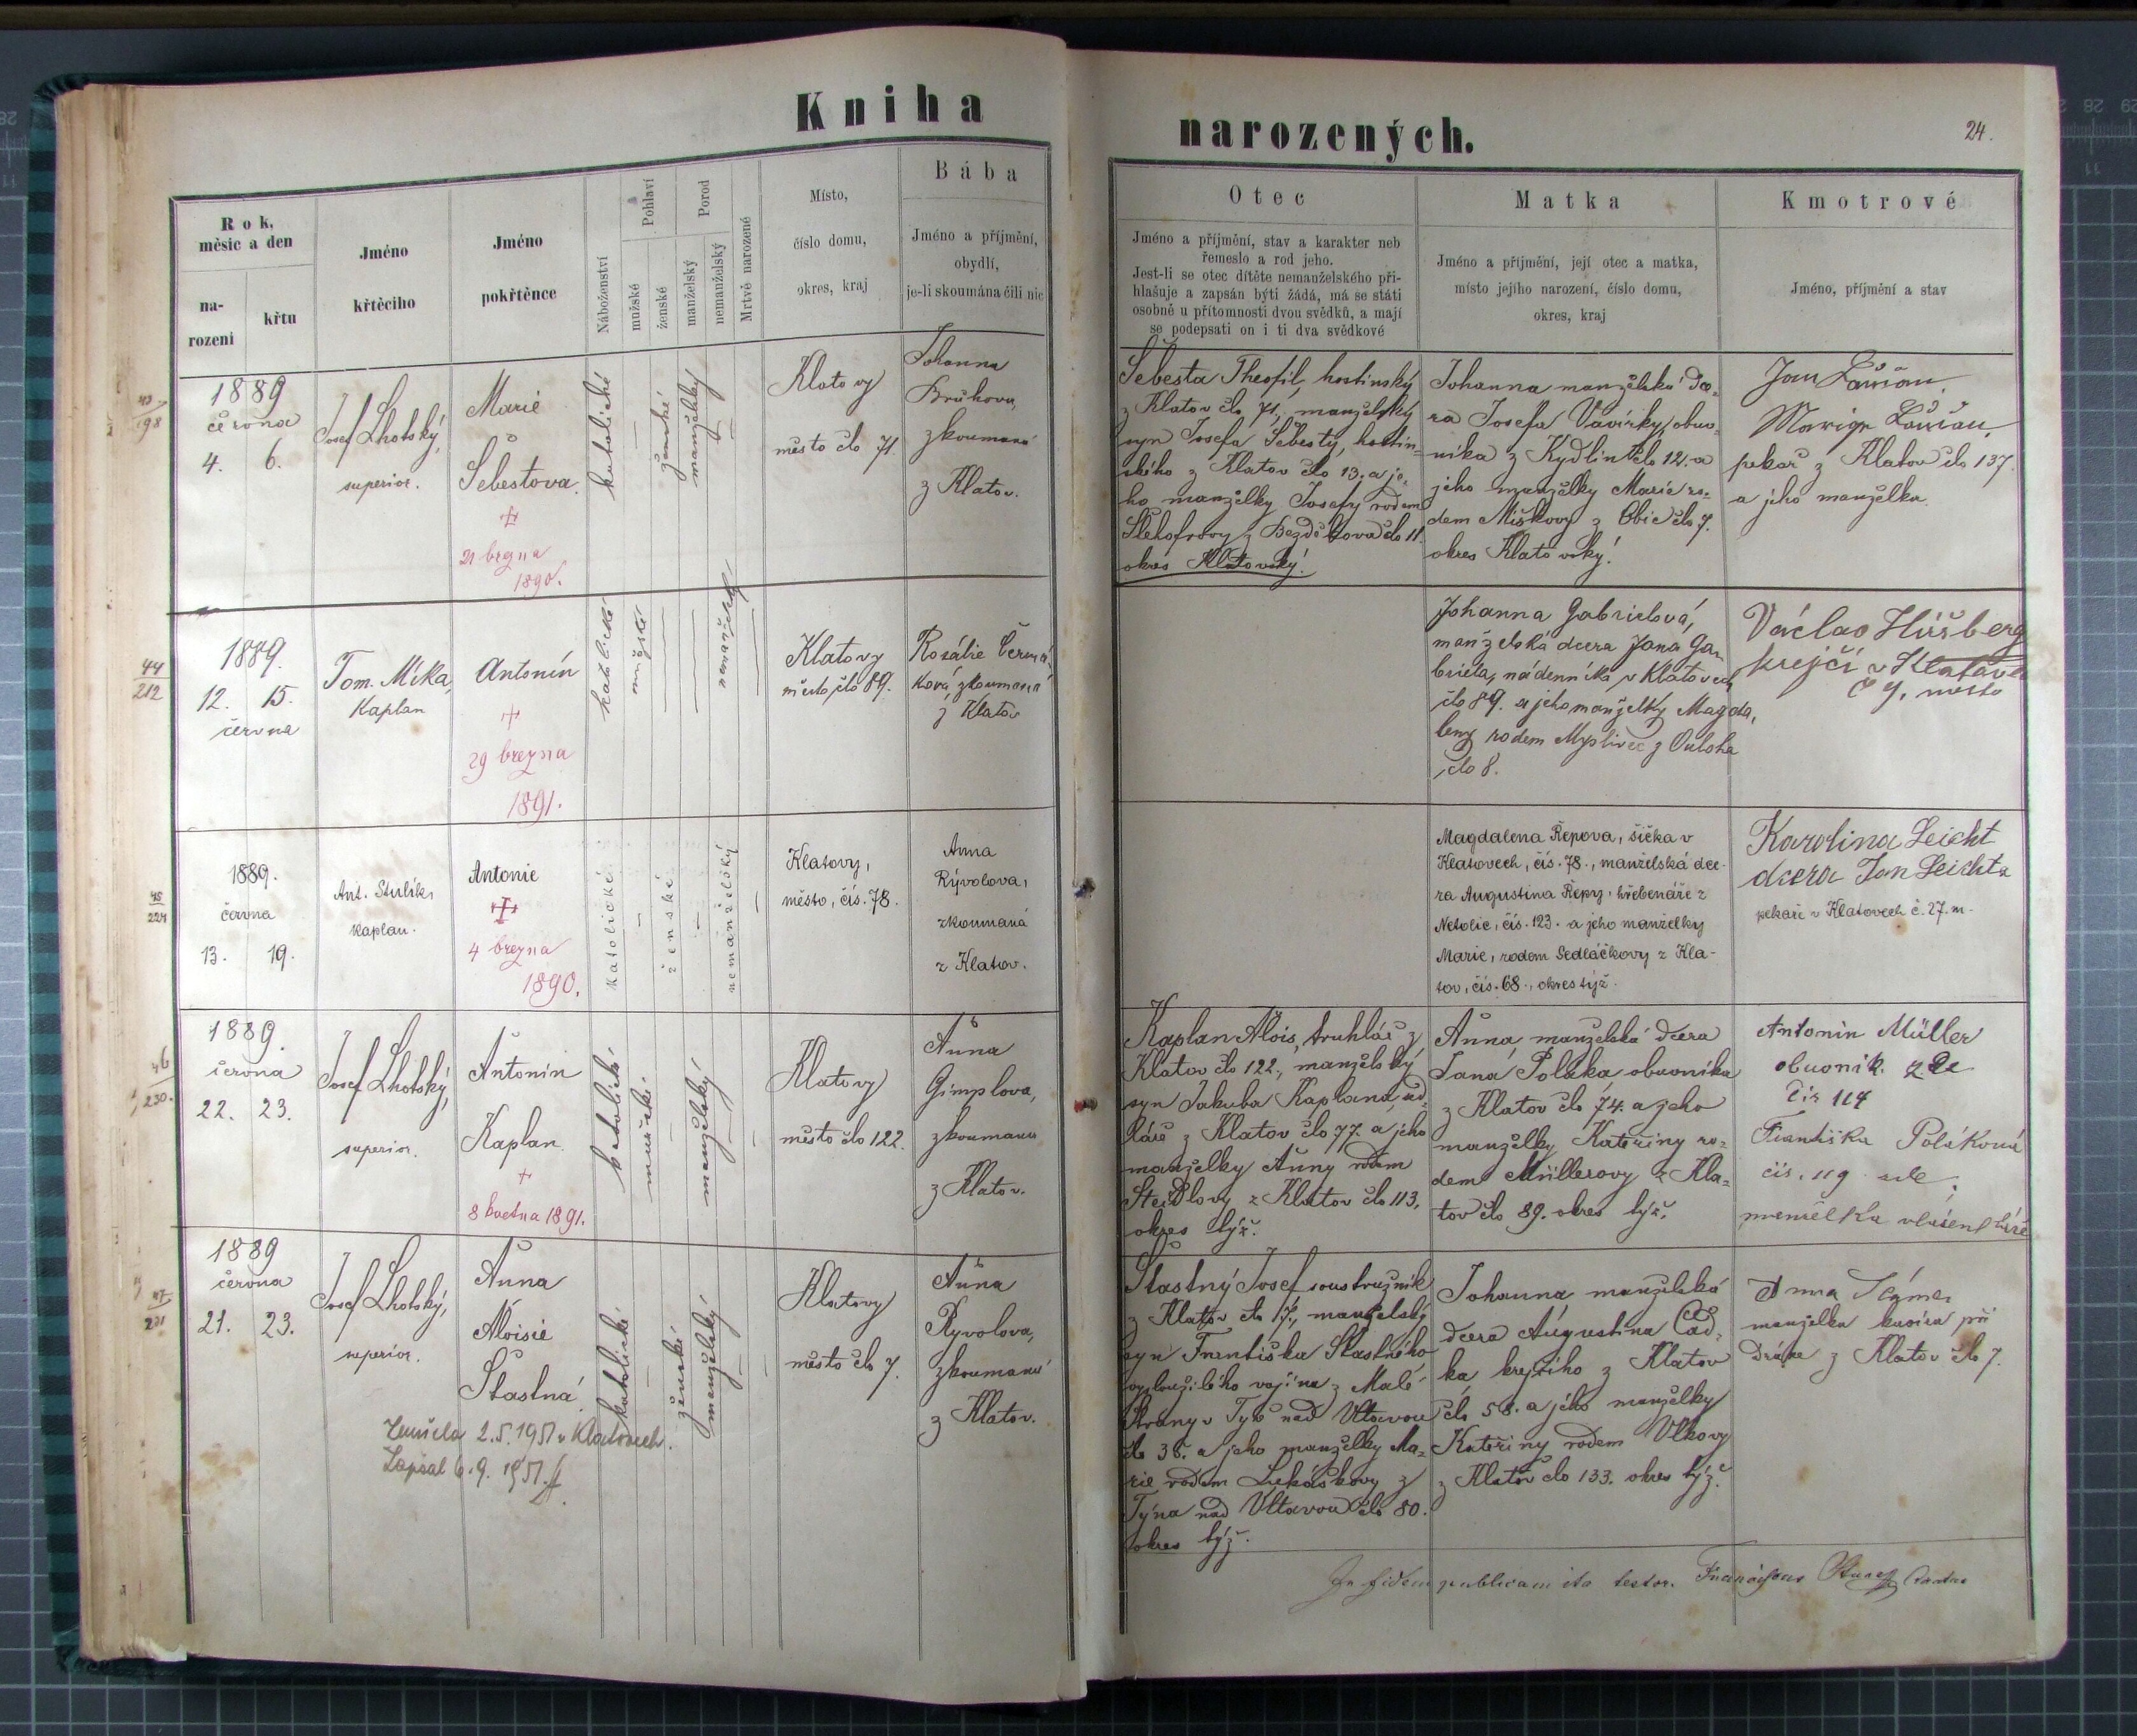 Kniha
narozených.
24.
Rok,
měsíc a den
na-
rozeni
křtu
Jméno
křtěcího
Jméno
pokřtěnce
Náboženství
Pohlaví
mužské
ženské
Porod
manželský
nemanželský
Mrtvě narozené
Místo,
číslo domu,
okres, kraj
Bába
Jméno a příjmění,
obydlí,
je-li skoumána čili nic
Otec
Jméno a příjmění, stav a karakter neb
řemeslo a rod jeho.
Jest-li se otec dítěte nemanželského při-
hlašuje a zapsán býti žádá, má se státi
osobně u přítomnosti dvou svědků, a mají
se podepsati on i ti dva svědkové
Matka
Jméno a příjmění, její otec a matka,
místo jejího narození, číslo domu,
okres, kraj
Kmotrové
Jméno, příjmění a stav
43
198
1889
června
4. 6.
Josef Lhotský,
superior.
Marie
Šebestova.
+
21 brzna
1890.
katolické
ženské
manželský
Klatovy
město člo 71.
Johanna
Brůhova,
zkoumaná
z Klatov.
Šebesta Theofil, hostinský
z Klatov člo 71, manželský
syn Josefa Šebesty, hostin-
ského z Klatov člo 13. a je-
ho manželky Josefy rodem
z Bezděkova člo 11
okres Klatovský.
Johanna manželská dce-
ra Josefa Vavírky, obuv-
níka z Kydlin člo 12. a
jeho manželky Marie ro-
dem Miškovy z Obic člo 7.
okres Klatovský.
Jan
Marie
pekař z Klatov člo 137
a jeho manželka.
44
212
1889.
12. 15.
června
Tom. Mika,
Kaplan
Antonín
+
29 března
1891.
katolické
mužské
nemanželský
Klatovy
město člo 89.
Rozálie Čermá-
ková zkoumaná
z Klatov
Johanna Gabrielová,
manželská dcera Jana Ga-
briela, nádenníka v Klatovech
člo 89. a jeho manželky Magda-
leny rodem Myslivec z Ouloha
člo 8.
Václav Hiršberg
krejčí v Klatově
č 9, město
45
224
1889.
června
13. 19.
Ant. Stulík,
kaplan.
Antonie
+
4 března
1890.
katolické
ženské
nemanželský
Klatovy,
město, čís. 78.
Anna
Rývolova,
zkoumaná
z Klatov.
Magdalena Řepova, šička v
Klatovech, čís. 78., manželská dce-
ra Augustina Řepy, hřebenáře z
Netolic, čís. 123. a jeho manželky
Marie, rodem Sedláčkovy z Kla-
tov, čís. 68., okres týž.
Karolina Leicht
dcera Jan Leichta
pekaře v Klatovech č. 27. m.
46
230.
1889.
června
22. 23.
Josef Lhotský,
superior.
Antonín
Kaplan.
+
8 května 1891.
katolické
mužské
manželský
Klatovy
město člo 122.
Anna
Gimplova,
zkoumana
z Klatov.
Kaplan Alois, truhlář z
Klatov člo 122., manželský
syn Jakuba Kaplana,
z Klatov člo 77. a jeho
manželky Anny rodem
Steidlovy z Klatov člo 113,
okres týž.
Anna, manželská dcera
Jana Poláka, obuvníka
z Klatov člo 74. a jeho
manželky Kateřiny ro-
dem Müllerovy z Kla-
tov člo 89. okres týž.
Antonín Müller
obuvník. zde
čís 114
Františka Poláková
čís. 119 zde.
manželka vlásenkáře
47
231
1889
června
21. 23.
Josef Lhotský,
superior.
Anna
Aloisie
Šťastná.
Zemřela 2.5.1951 v Klatovech.
Zapsal 6.9.1951.
katolické
ženské
manželský
Klatovy
město člo 7.
Anna
Ryvolova,
zkoumaná
z Klatov.
Šťastný Josef soustružník
z Klatov člo 17., manželský
syn Františka Šťastného
vysloužilého vojína z Malé
Strany v Týně nad Vltavou
člo 38. a jeho manželky Ma-
rie, rodem Lukáškovy z
Týna nad Vltavou člo 80.
okres týž.
Johanna manželská
dcera Augustina Čád-
ka, krejčího z Klatov
člo 58. a jeho manželky
Kateřiny rodem Vlkovy
z Klatov člo 133. okres týž.
Anna
manželka kovíra při
dráze z Klatov člo 7.
In fidem publicam ita testor. Franciscus